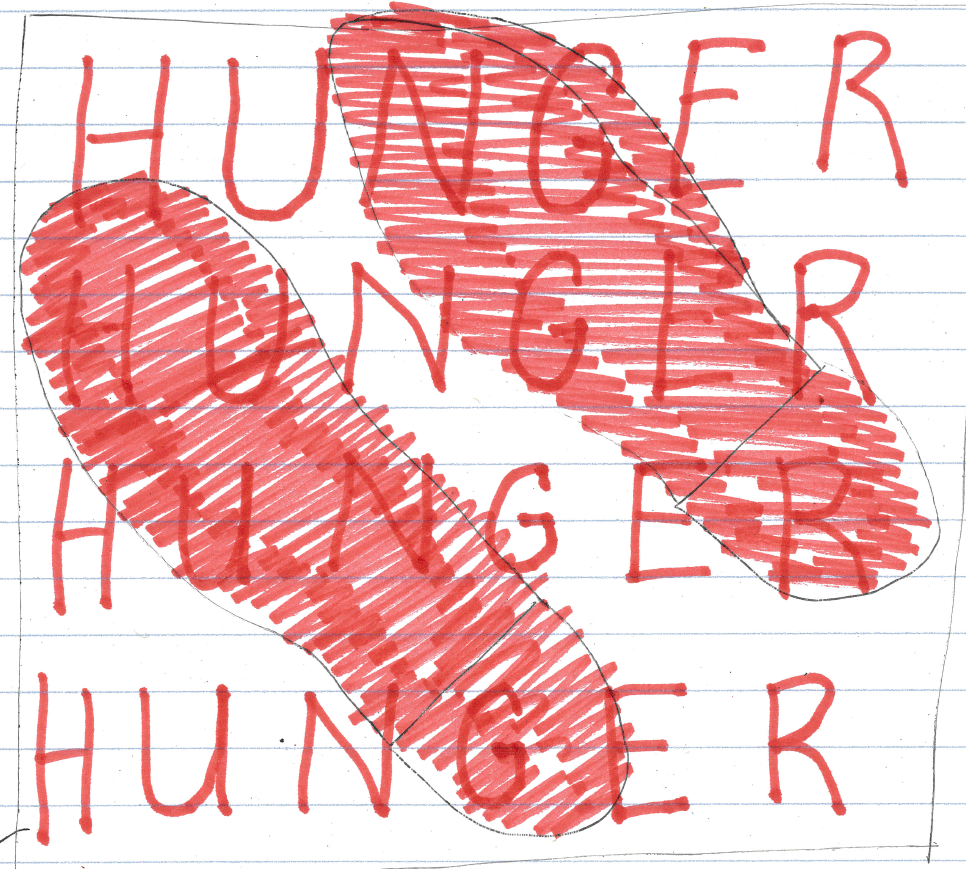 HUNGER
HUNGER
HUNGER
HUNGER